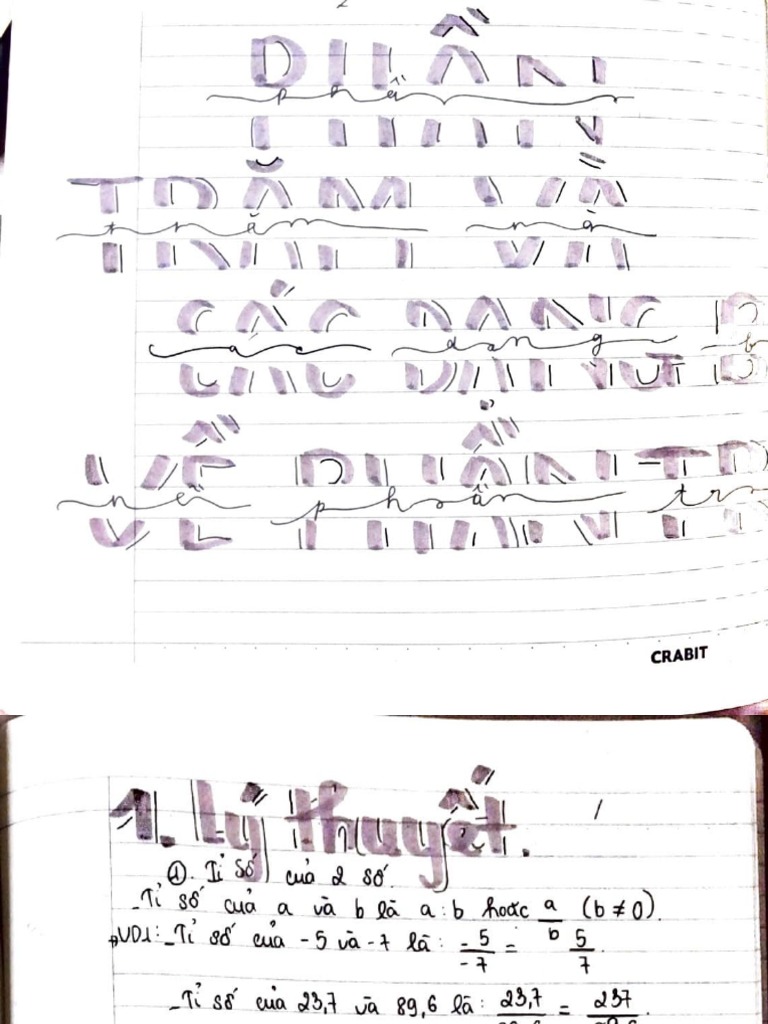 PHẦN
phần
TRĂM VÀ
trăm và
CÁC DẠNG B
các dạng b
VỀ PHẨN TR
về phẩn tr
CRABIT
1. Lý thuyết.
①. Tỉ số của 2 số.
_Tỉ số của a và b là a:b hoặc a/b (b ≠ 0).
VD1: _Tỉ số của -5 và -7 là: -5/-7 = 5/7
_Tỉ số của 23,7 và 89,6 là: 23,7/89,6 = 237